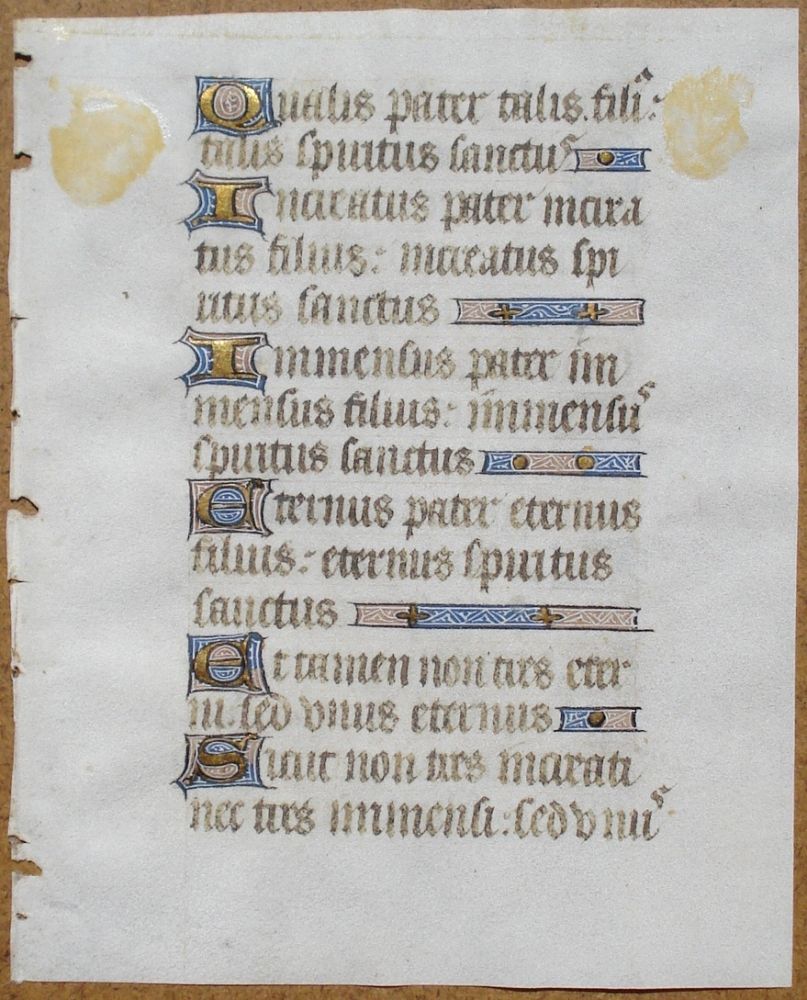 Qualis pater talis. fili9:
talis spiritus sanctus
Increatus pater increa
tus filius: increatus spi
ritus sanctus
Immensus pater im
mensus filius: immensus
spiritus sanctus
Eternus pater eternus
filius: eternus spiritus
sanctus
Et tamen non tres eter
ni. sed vnus eternus
Sicut non tres increati
nec tres immensi: sed vnus